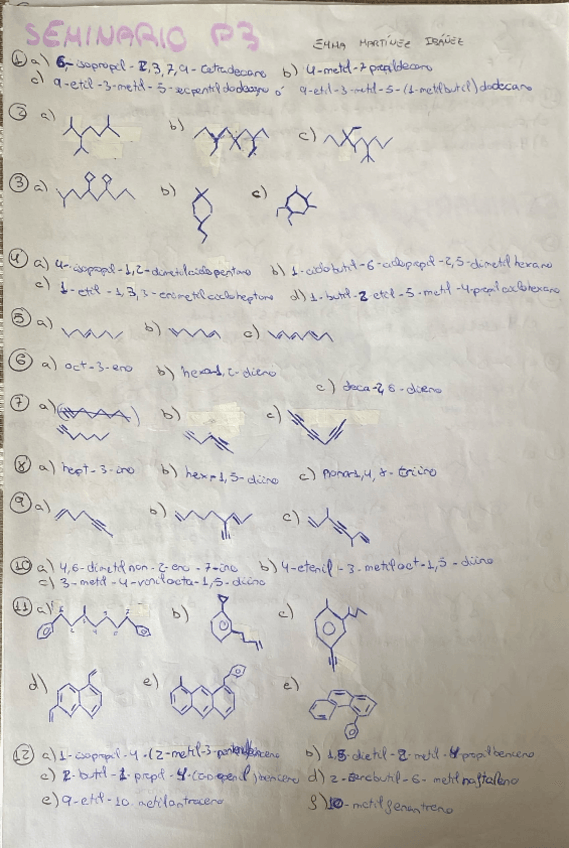 SEMINARIO P3
EMMA MARTÍNEZ IBÁÑEZ
① a) 6-isopropil-2,3,7,9-tetradecano b) 4-metil-7-propildecano
c) 9-etil-3-metil-5-secpentildodecano ó 9-etil-3-metil-5-(1-metilbutil)dodecano
② a) b) c)
③ a) b) c)
④ a) 4-isopropil-1,2-dimetilciclopentano b) 1-ciclobutil-6-ciclopropil-2,5-dimetilhexano
c) 1-etil-1,3,3-trimetilcicloheptano d) 1-butil-2 etil-5-metil-4-propilciclohexano
⑤ a) b) c)
⑥ a) oct-3-eno b) hexa-1,2-dieno
c) deca-2,6-dieno
⑦ a) b) c)
⑧ a) hept-3-ino b) hex-1,5-diino c) nona-1,4,8-triino
⑨ a) b) c)
⑩ a) 4,6-dimetilnon-2-eno-7-ino b) 4-etenil-3-metiloct-1,5-diino
c) 3-metil-4-vinilocta-1,5-diino
⑪ a) b) c)
d) e) e)
⑫ a) 1-isopropil-4-(2-metil-3- b) 1,5-dietil-2-metil-4-propilbenceno
c) 2-butil-1-propil-4- benceno d) 2-secbutil-6-metilnaftaleno
e) 9-etil-10-metilantraceno f) 10-metilfenantreno